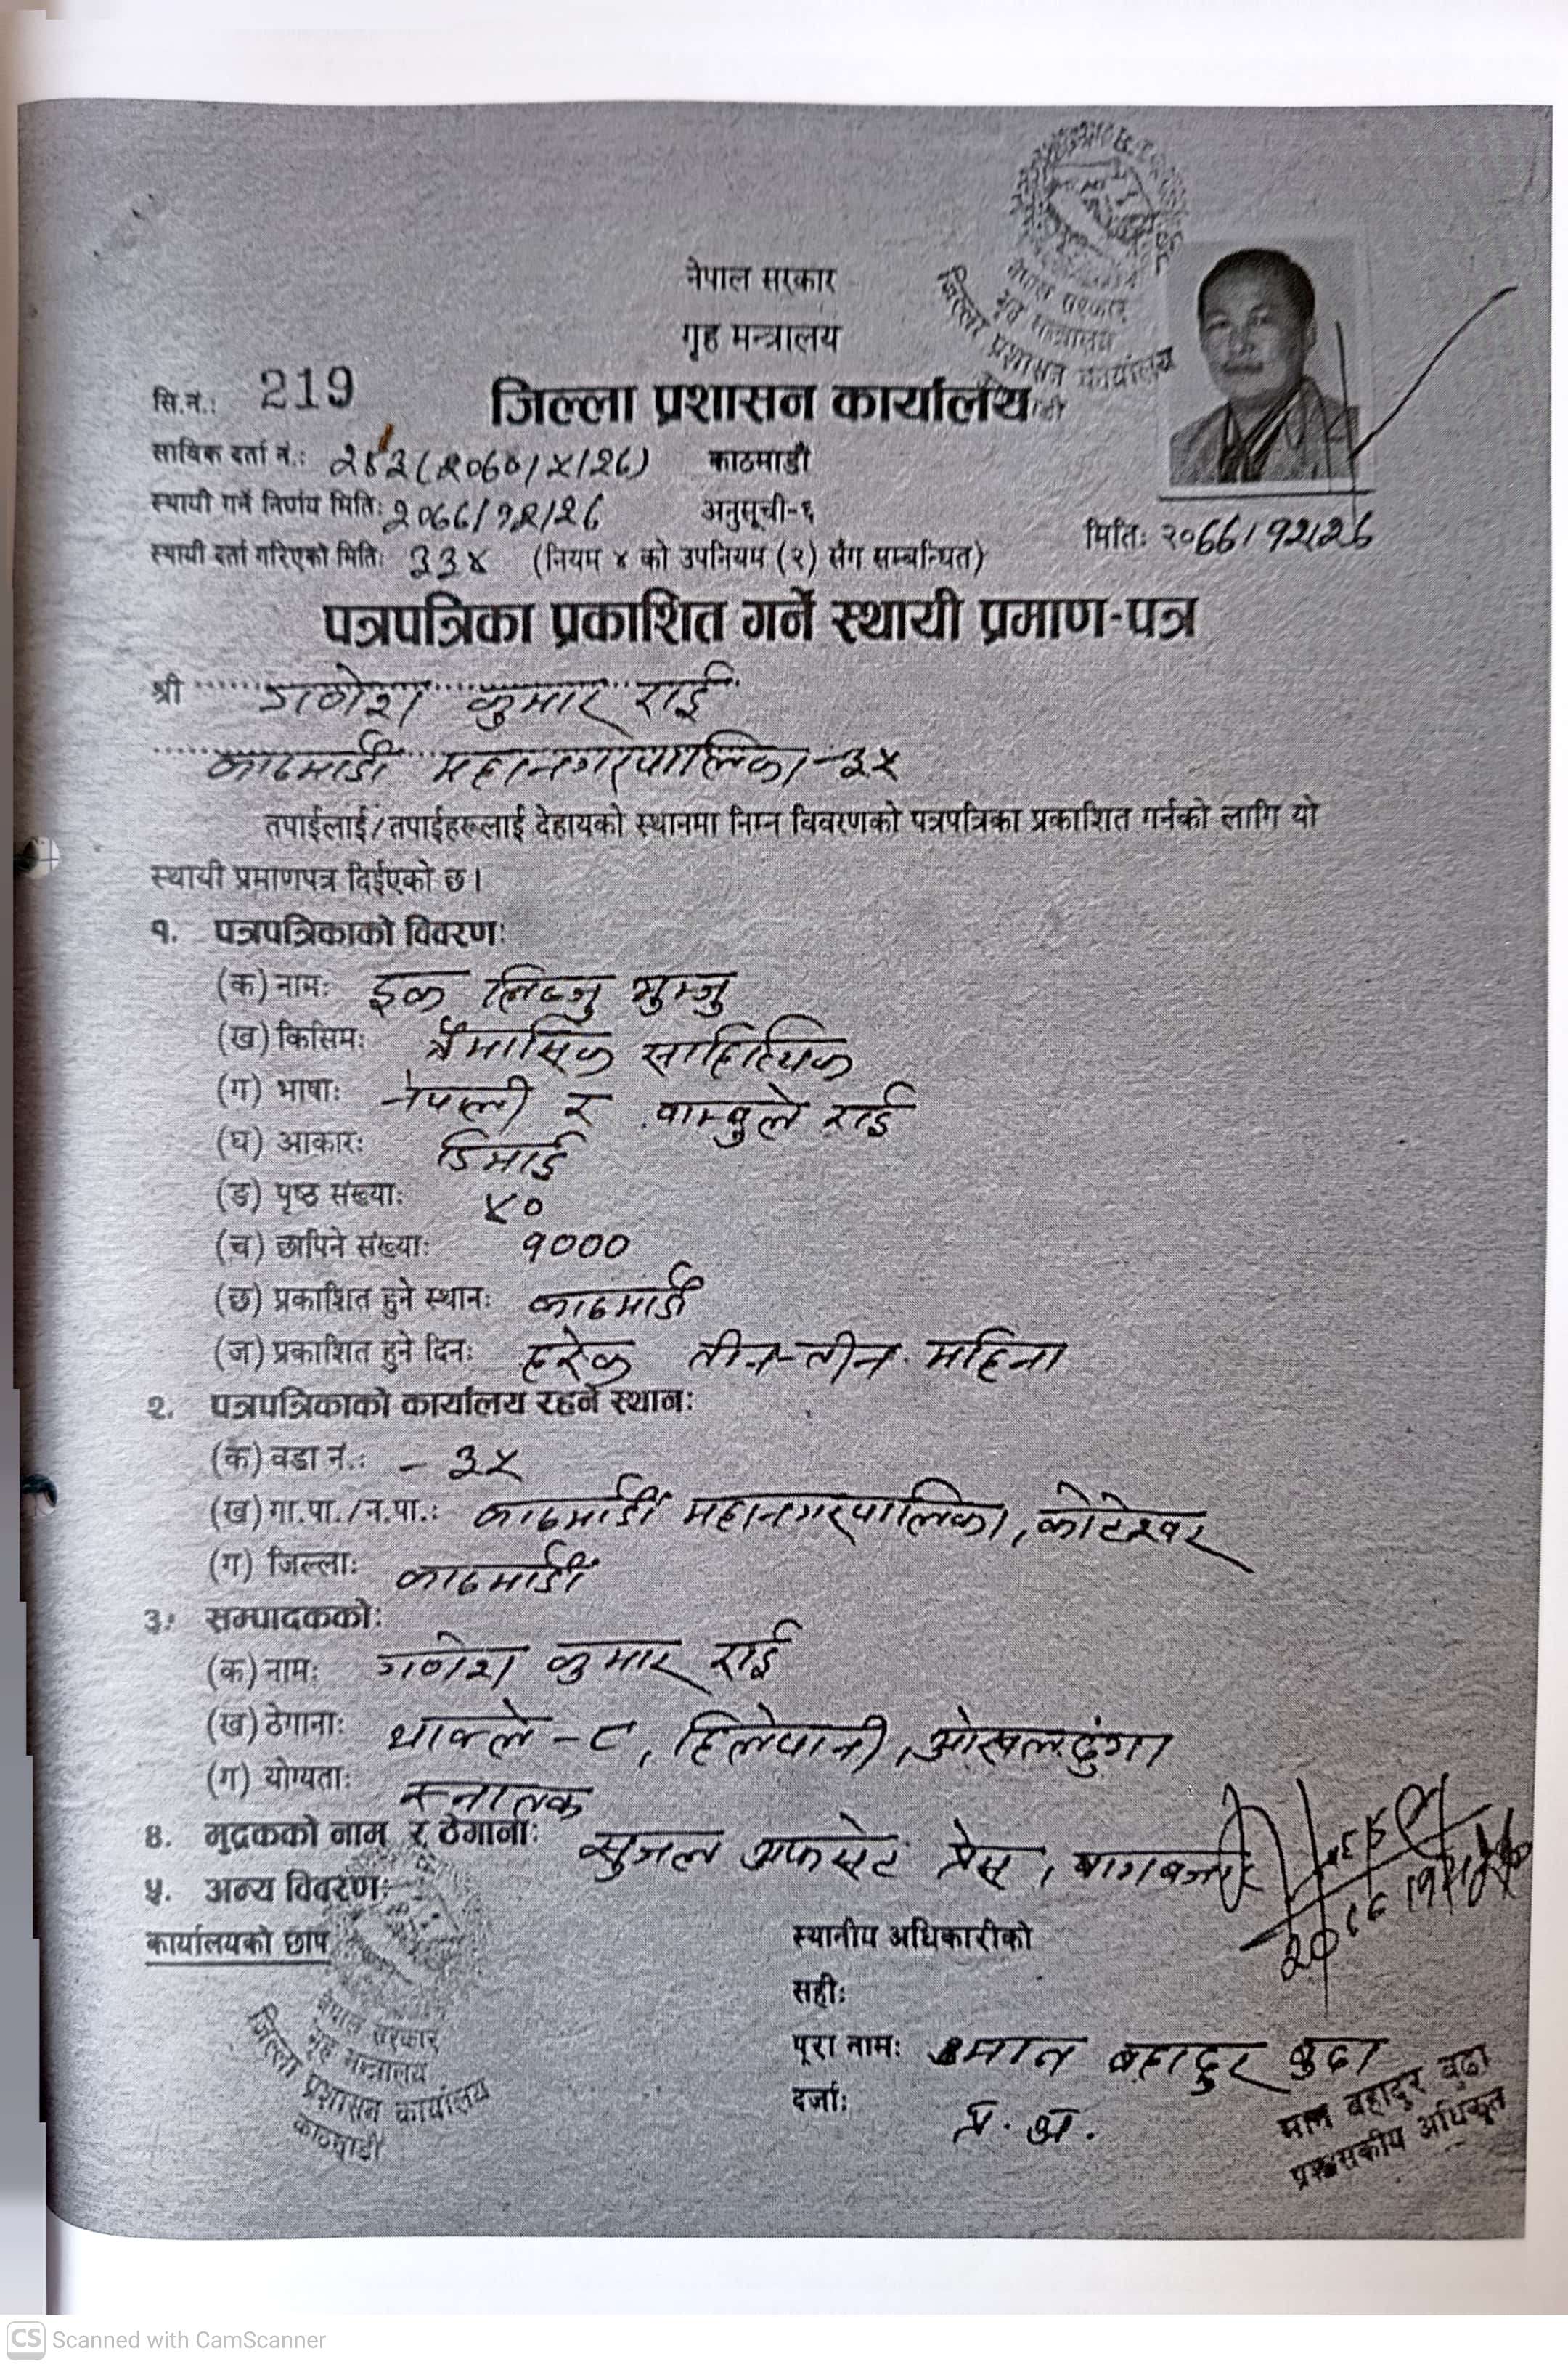 नेपाल सरकार
गृह मन्त्रालय
सि.नं.: 219
जिल्ला प्रशासन कार्यालय
साविक दर्ता नं.: (२०६०/५/२६) काठमाडौं
स्थायी गर्ने निर्णय मिति: २०६६/१२/२६ अनुसूची-६
मिति: २०६६/१२/२६
स्थायी दर्ता गरिएको मिति: ३३५ (नियम ४ को उपनियम (२) सँग सम्बन्धित)
पत्रपत्रिका प्रकाशित गर्ने स्थायी प्रमाण-पत्र
श्री गणेश कुमार राई
काठमाडौं महानगरपालिका-३५
तपाईलाई/तपाईहरूलाई देहायको स्थानमा निम्न विवरणको पत्रपत्रिका प्रकाशित गर्नको लागि यो
स्थायी प्रमाणपत्र दिईएको छ।
१. पत्रपत्रिकाको विवरण:
(क) नाम: इक लिब्जु भुम्जु
(ख) किसिम: त्रैमासिक साहित्यिक
(ग) भाषा: नेपाली र वाम्बुले राई
(घ) आकार: डिमाई
(ङ) पृष्ठ संख्या: ४०
(च) छापिने संख्या: १०००
(छ) प्रकाशित हुने स्थान: काठमाडौं
(ज) प्रकाशित हुने दिन: हरेक तीन-तीन महिना
२. पत्रपत्रिकाको कार्यालय रहने स्थान:
(क) वडा नं.: - ३५
(ख) गा.पा./न.पा.: काठमाडौं महानगरपालिका, कोटेश्वर
(ग) जिल्ला: काठमाडौं
३. सम्पादकको:
(क) नाम: गणेश कुमार राई
(ख) ठेगाना: थाक्ले-८, हिलेपानी, ओखलढुंगा
(ग) योग्यता: स्नातक
४. मुद्रकको नाम र ठेगाना: सुजल अफसेट प्रेस, बागबजार
५. अन्य विवरण:
कार्यालयको छाप
स्थानीय अधिकारीको
सही:
पूरा नाम: मान बहादुर बुढा
दर्जा: प्र. अ.
मान बहादुर बुढा
प्रशासकीय अधिकृत
नेपाल सरकार
गृह मन्त्रालय
जिल्ला प्रशासन कार्यालय
काठमाडौं
नेपाल सरकार
गृह मन्त्रालय
जिल्ला प्रशासन कार्यालय
CS Scanned with CamScanner